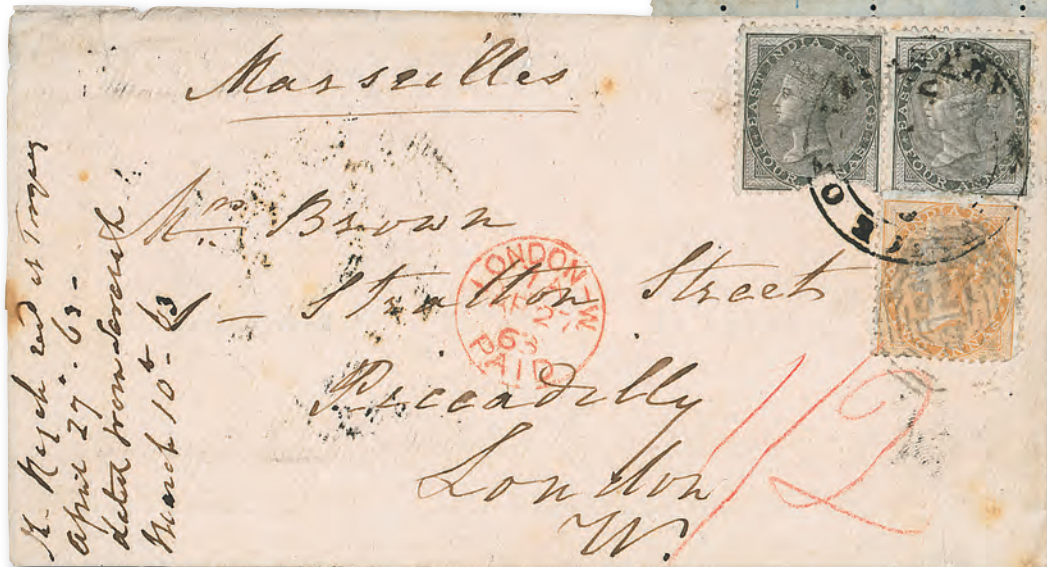 Marseilles
Mrs Brown
Stratton Street
Piccadilly
London
W.
1/2
LONDON-W
63
PAID
EAST INDIA POSTAGE
FOUR ANNAS
EAST INDIA POSTAGE
FOUR ANNAS
April 27. 63-
dated from
March 10th 63